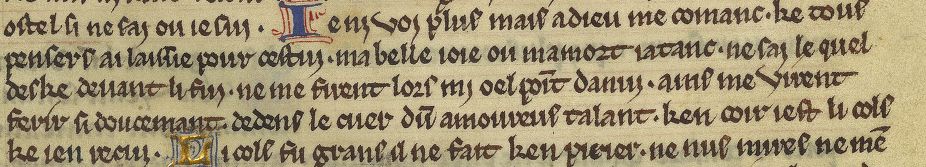 ostel si ne sai ou ie sui . Ie ni voi plus mais adieu me comanc . ke tous
pensers ai laissie pour cestui . ma belle ioie ou ma mort iatanc . ne sai le quel
deske deuant li fui . ne me firent lors mi oel poīt danui . ains me vinrent
ferir si doucemant . dedens le cuer dū amoureus talant . ken cor iest li cols
ke ien recui . Li cols fu grans il ne fait ken pirier . ne nus mires ne mē